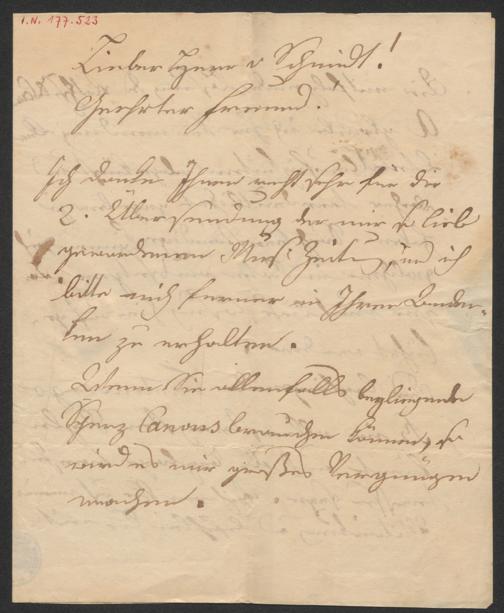 I.N. 177.523
Lieber Herr v Schmidt!
Geehrter Freund.
Ich danke Ihnen recht sehr für die
2. Übersendung der mir so lieb
gewordenen Musi: Zeitung, und ich
bitte mich ferner in Ihrem Anden-
ken zu erhalten.
Wenn Sie allenfalls beyliegende
Scherz Canons brauchen können, so
wird es mir großes Vergnügen
machen.